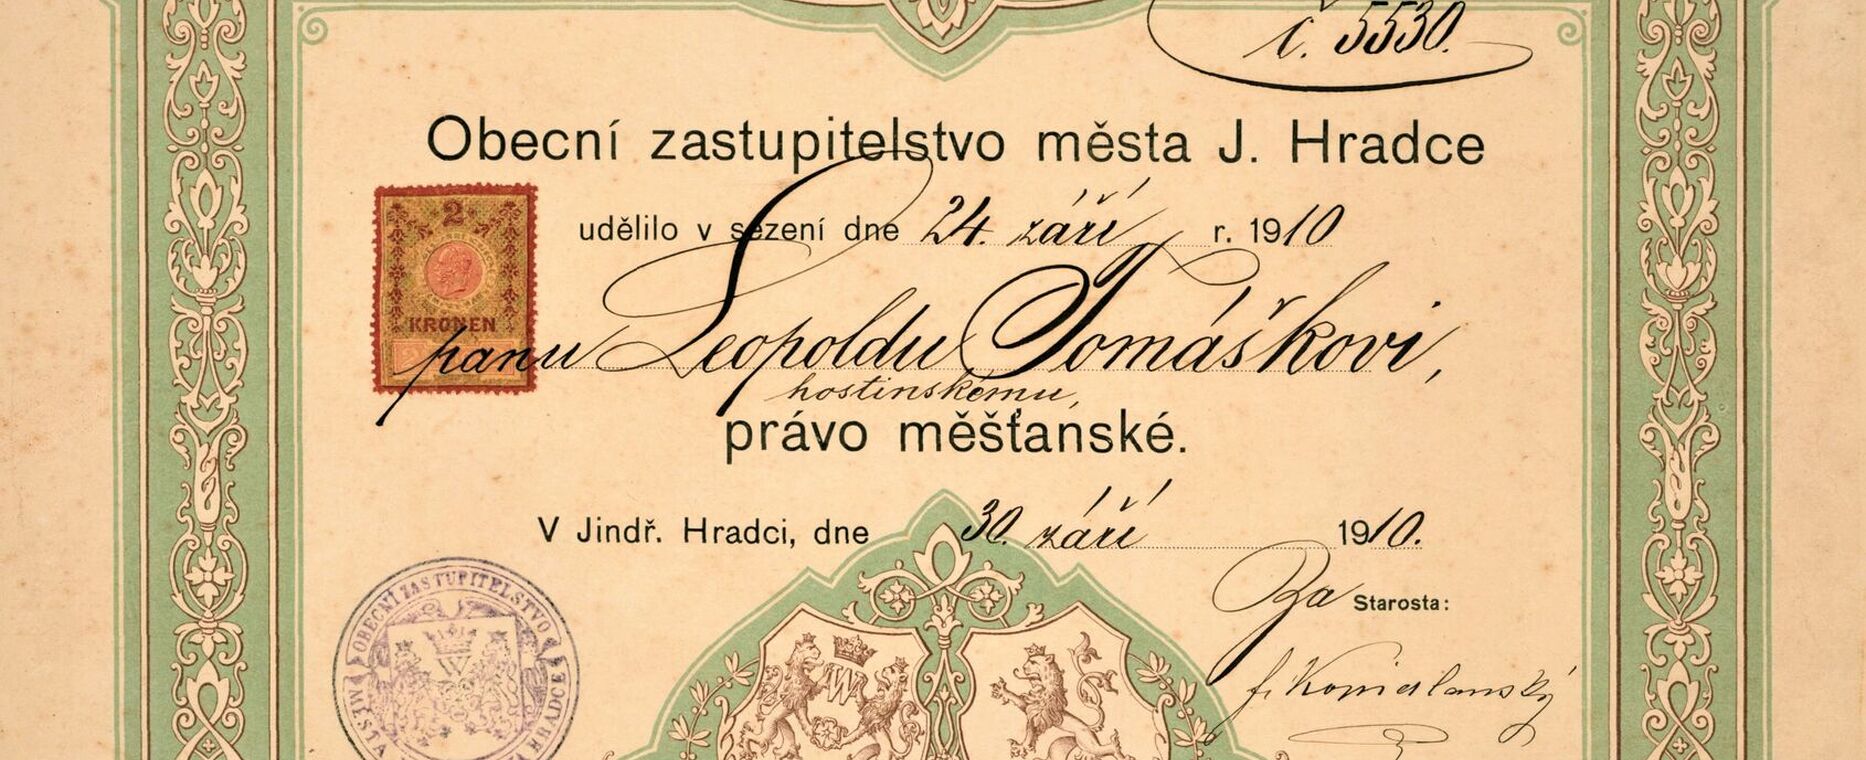 č. 5530.
Obecní zastupitelstvo města J. Hradce
udělilo v sezení dne 24. září r. 1910
2
KRONEN
2
panu Leopoldu Tomáškovi,
hostinskému,
právo měšťanské.
V Jindř. Hradci, dne 30. září 1910.
Za Starosta:
OBECNÍ ZASTUPITELSTVO
MĚSTA
HRADCE
W
W